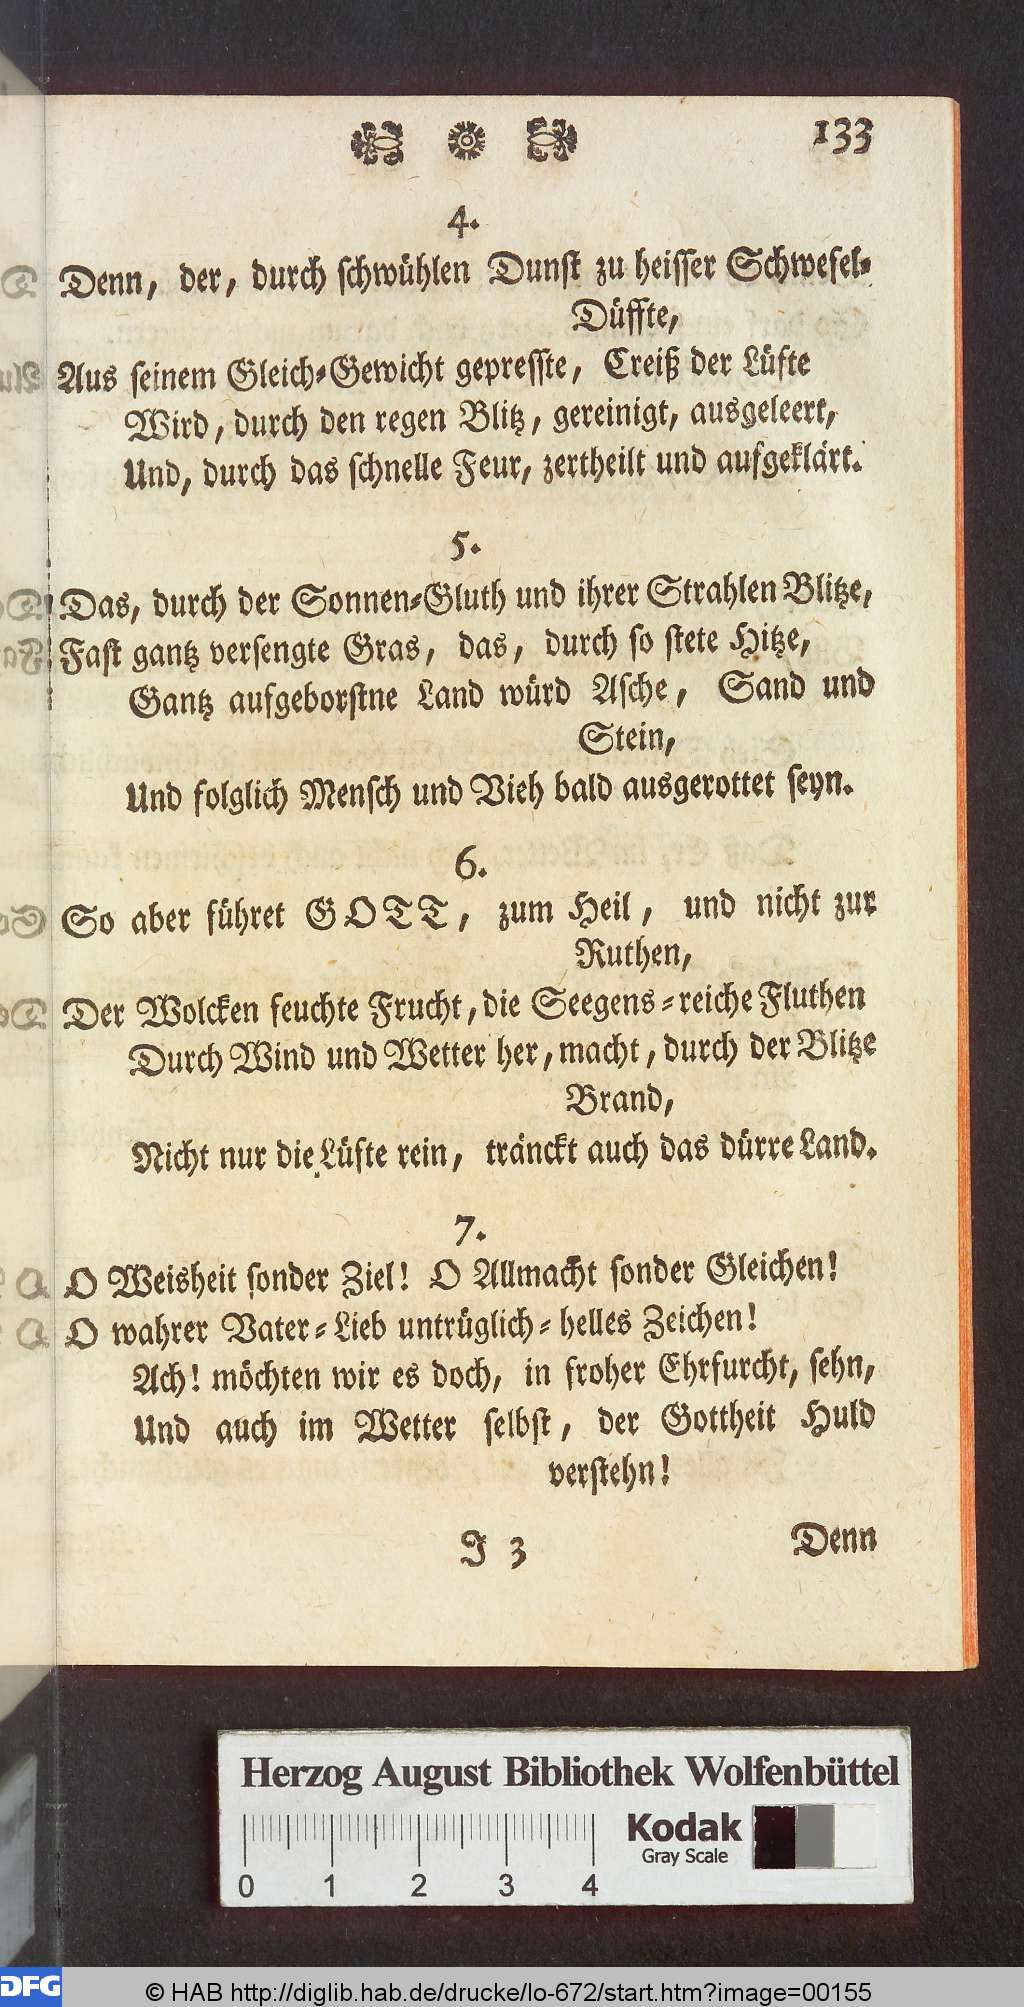 133
4.
Denn, der, durch schwühlen Dunst zu heisser Schwefel-
Düffte,
Aus seinem Gleich-Gewicht gepresste, Creiß der Lüfte
Wird, durch den regen Blitz, gereinigt, ausgeleert,
Und, durch das schnelle Feur, zertheilt und aufgeklärt.
5.
Das, durch der Sonnen-Gluth und ihrer Strahlen Blitze,
Fast gantz versengte Gras, das, durch so stete Hitze,
Gantz aufgeborstne Land würd Asche, Sand und
Stein,
Und folglich Mensch und Vieh bald ausgerottet seyn.
6.
So aber führet GOTT, zum Heil, und nicht zur
Ruthen,
Der Wolcken feuchte Frucht, die Seegens-reiche Fluthen
Durch Wind und Wetter her, macht, durch der Blitze
Brand,
Nicht nur die Lüfte rein, tränckt auch das dürre Land.
7.
O Weisheit sonder Ziel! O Allmacht sonder Gleichen!
O wahrer Vater-Lieb untrüglich-helles Zeichen!
Ach! möchten wir es doch, in froher Ehrfurcht, sehn,
Und auch im Wetter selbst, der Gottheit Huld
verstehn!
J 3 Denn
Herzog August Bibliothek Wolfenbüttel
Kodak
Gray Scale
0 1 2 3 4
DFG © HAB http://diglib.hab.de/drucke/lo-672/start.htm?image=00155